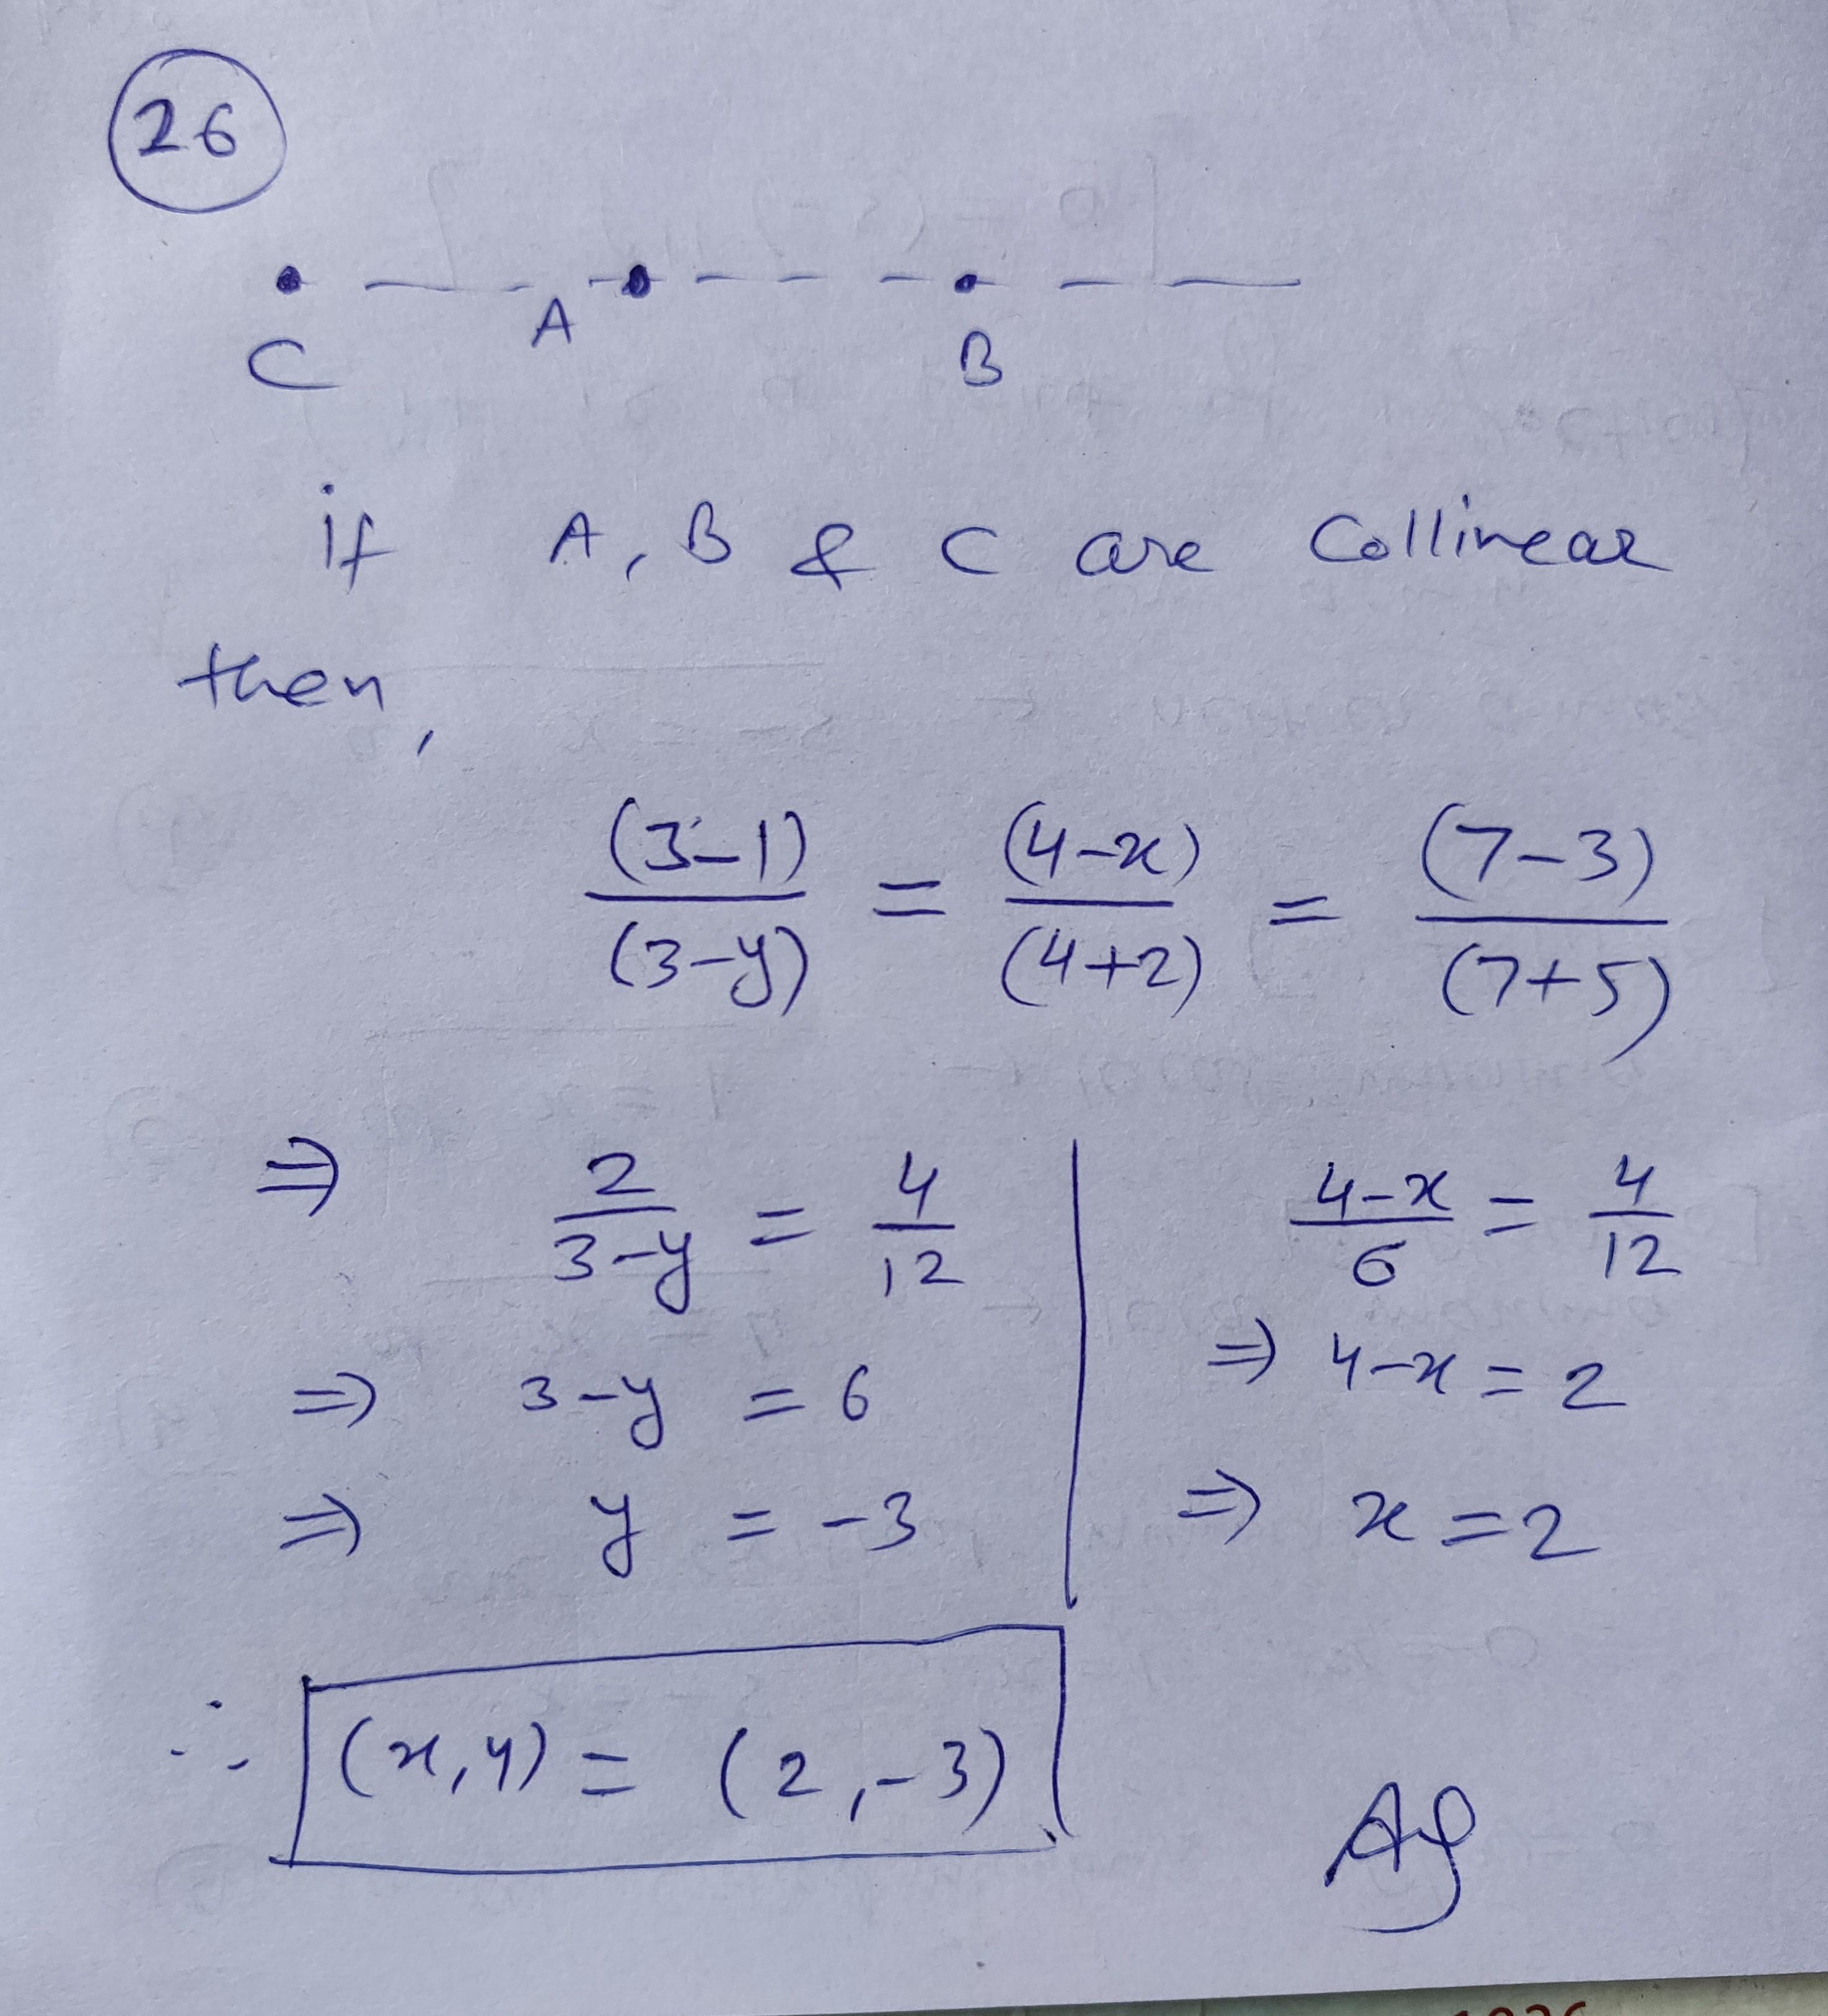 26
C A B
if A, B & C are Collinear
then,
(3-1)/(3-y) = (4-x)/(4+2) = (7-3)/(7+5)
⇒ 2/(3-y) = 4/12 | (4-x)/6 = 4/12
⇒ 3-y = 6 | ⇒ 4-x = 2
⇒ y = -3 | ⇒ x = 2
∴ (x,y) = (2,-3)